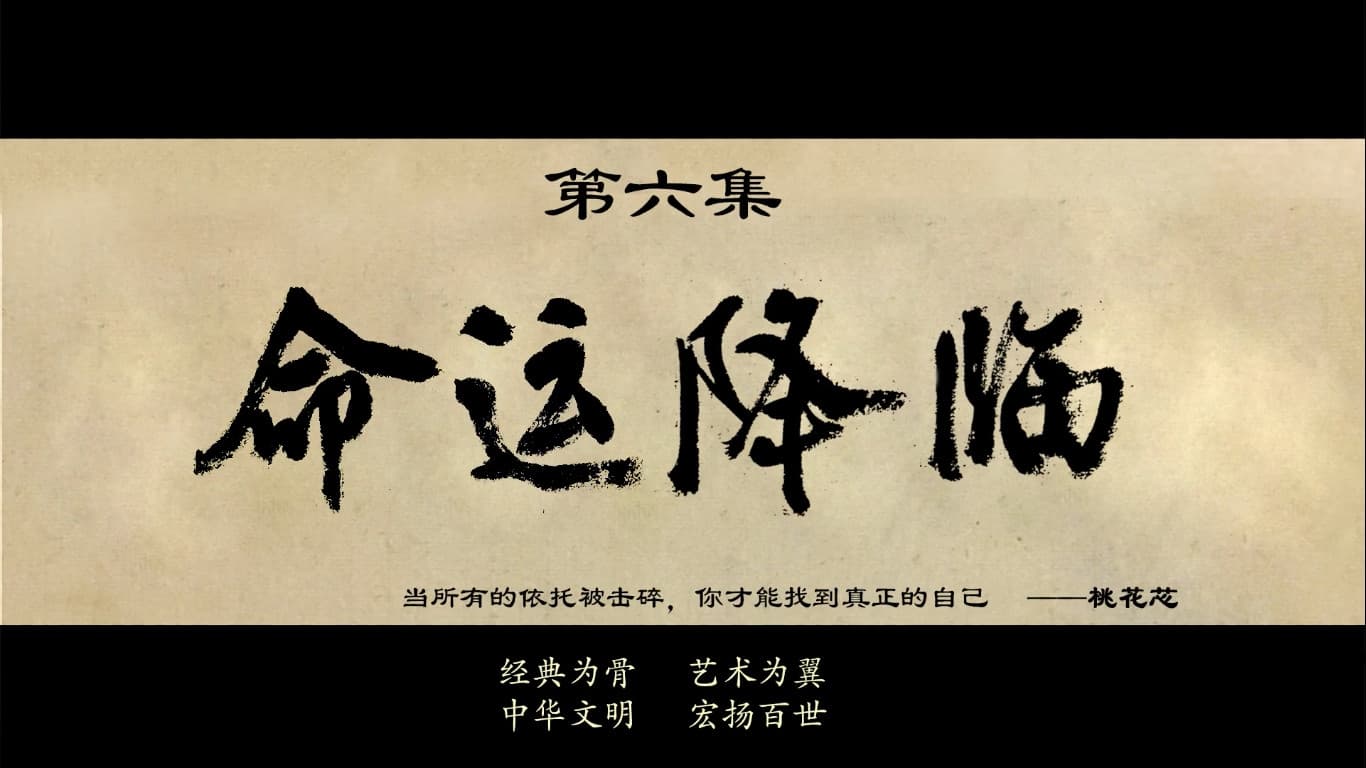 第六集
命运降临
当所有的依托被击碎，你才能找到真正的自己 ——桃花芯
经典为骨 艺术为翼
中华文明 宏扬百世